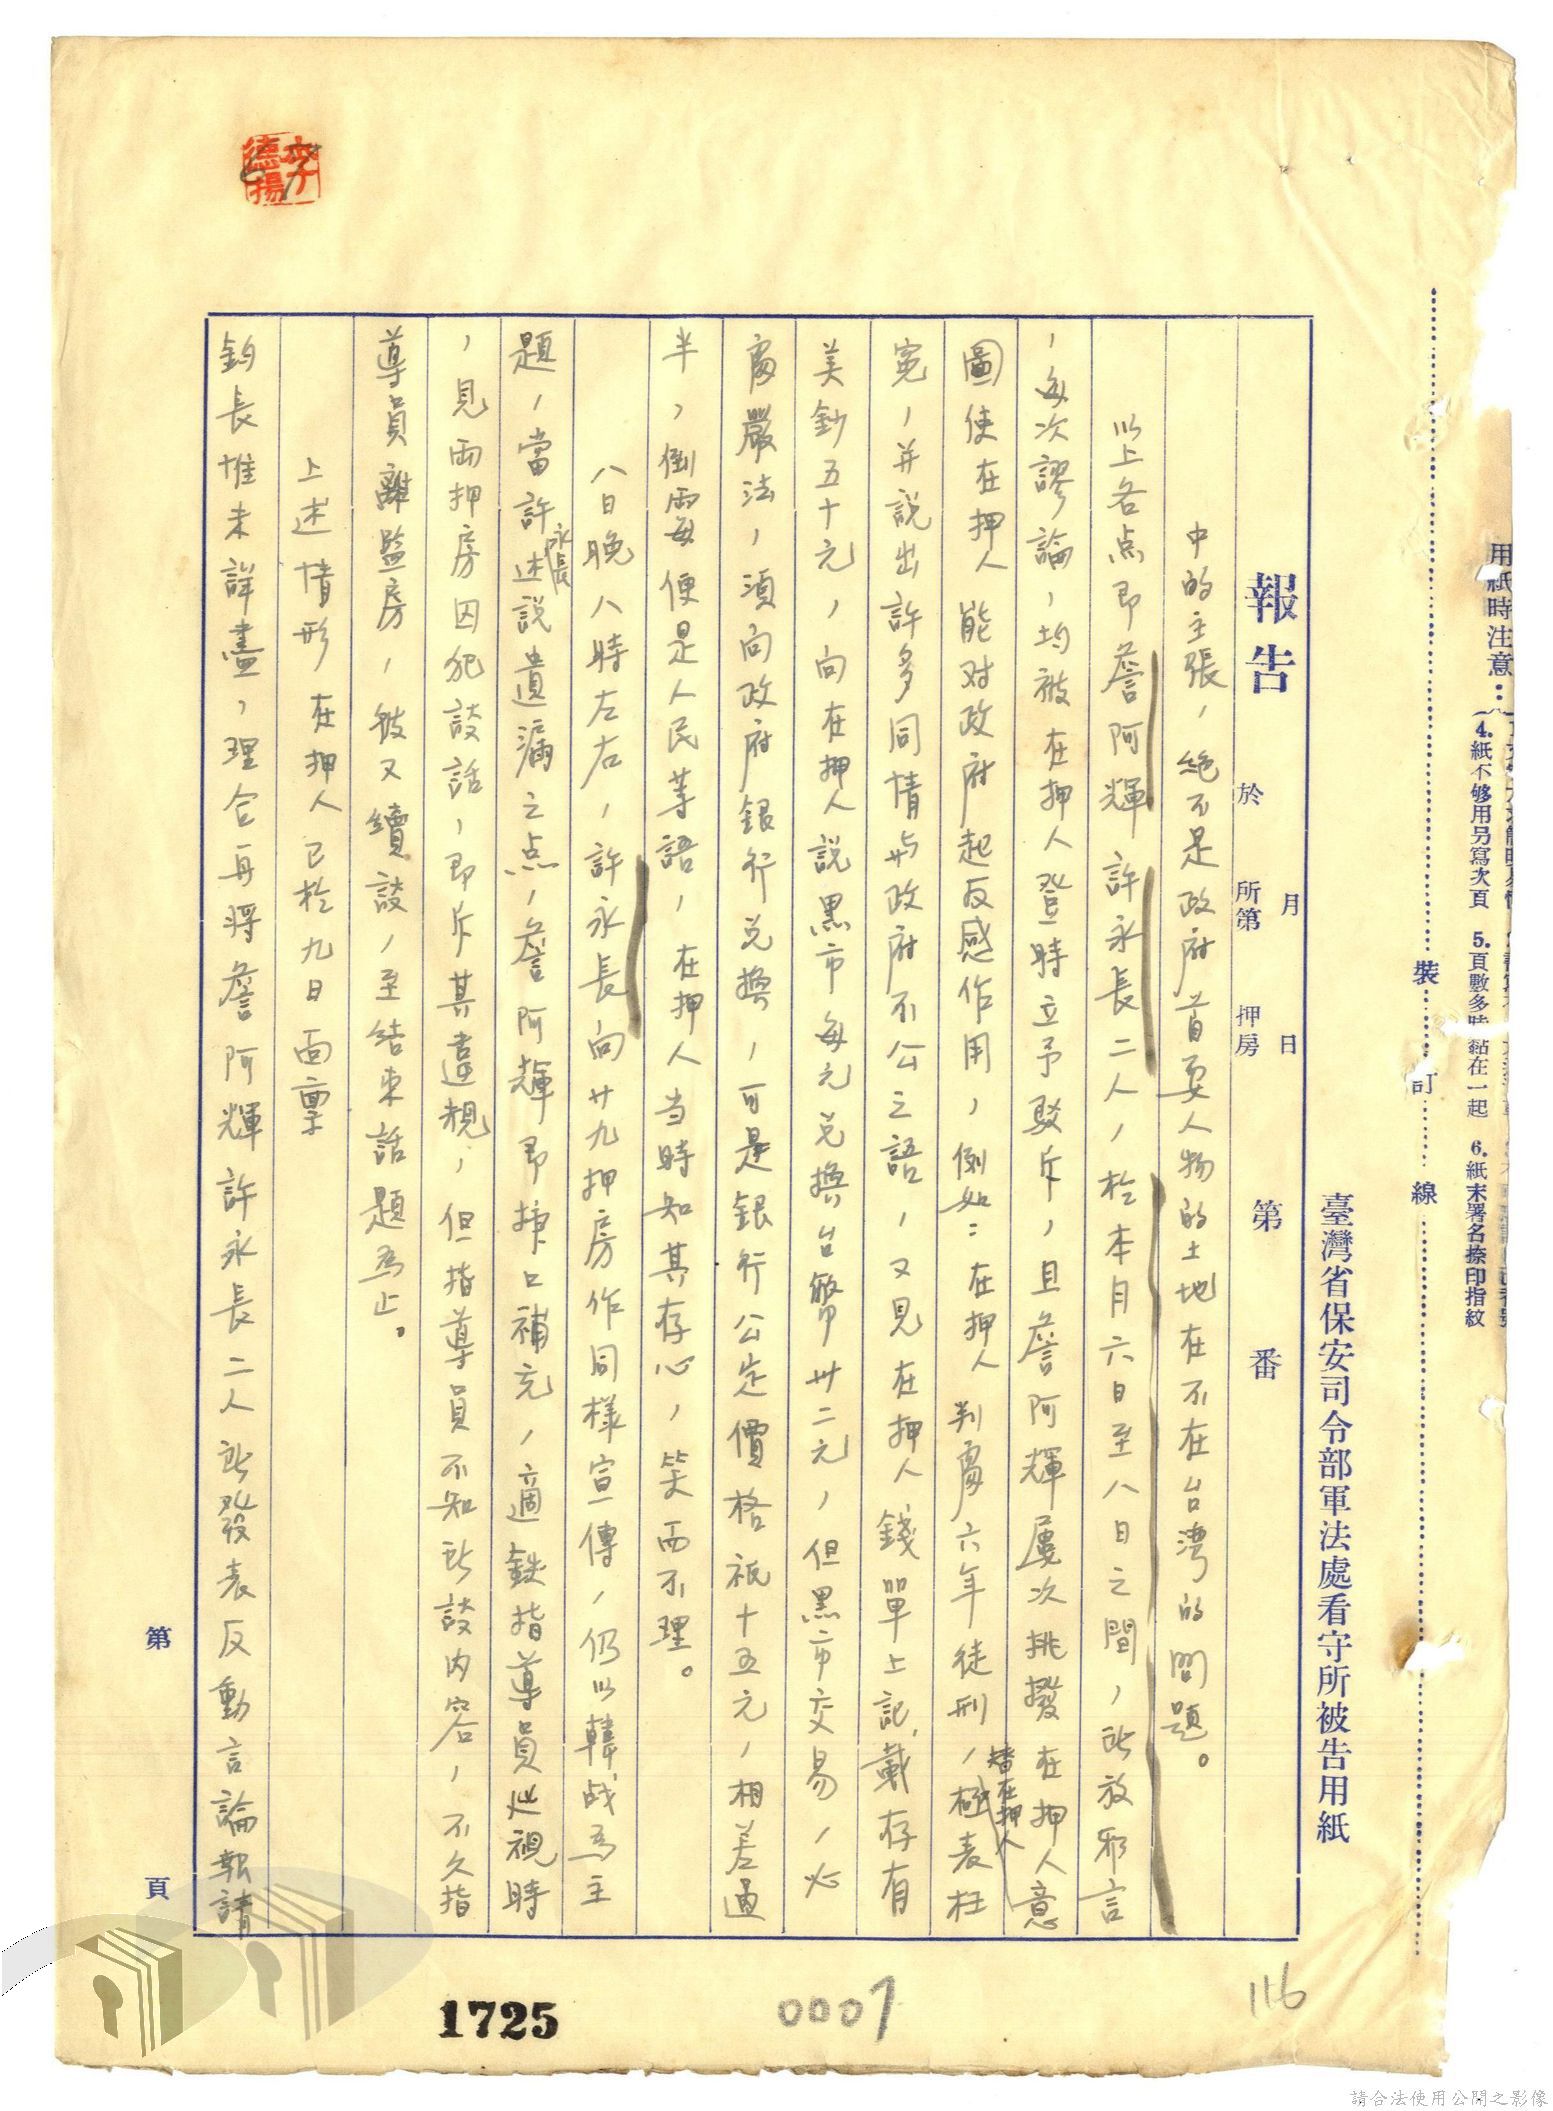 用紙時注意：
4.紙不够用另寫次頁　5.頁數多時黏在一起　6.紙末署名捺印指紋
裝 訂 線
臺灣省保安司令部軍法處看守所被告用紙
報告 於 月 日 所第 押房 第 番
中的主張，絕不是政府首要人物的土地在不在台湾的問題。
以上各点即詹阿輝許永長二人，於本月六日至八日之間，所放邪言
，每次謬論，均被在押人登時立予駁斥，且詹阿輝屢次挑撥在押人意
圖使在押人能对政府起反感作用，例如：在押人判處六年徒刑，極替在押人表枉
寃，并説出許多同情与政府不公之語，又見在押人錢單上記載存有
美鈔五十元，向在押人説黑市每元兑换台幣卅二元，但黑市交易，必
處嚴法，須向政府銀行兑換，可是銀行公定價格祇十五元，相差過
半，倒霉便是人民等語，在押人当時知其存心，笑而不理。
八日晚八時左右，許永長向廿九押房作同樣宣傳，仍以韓战為主
題，當許永長述説遺漏之点，詹阿輝即揷口補充，適鉄指導員廵視時
，見両押房囚犯談話，即斥其違規，但指導員不知所談内容，不久指
導員離監房，彼又續談，至結束話題為止。
上述情形在押人已於九日面禀
鈞長惟未詳盡，理合再将詹阿輝許永長二人所發表反動言論報請
第 頁
李德揚
116
0007
1725
請合法使用公開之影像